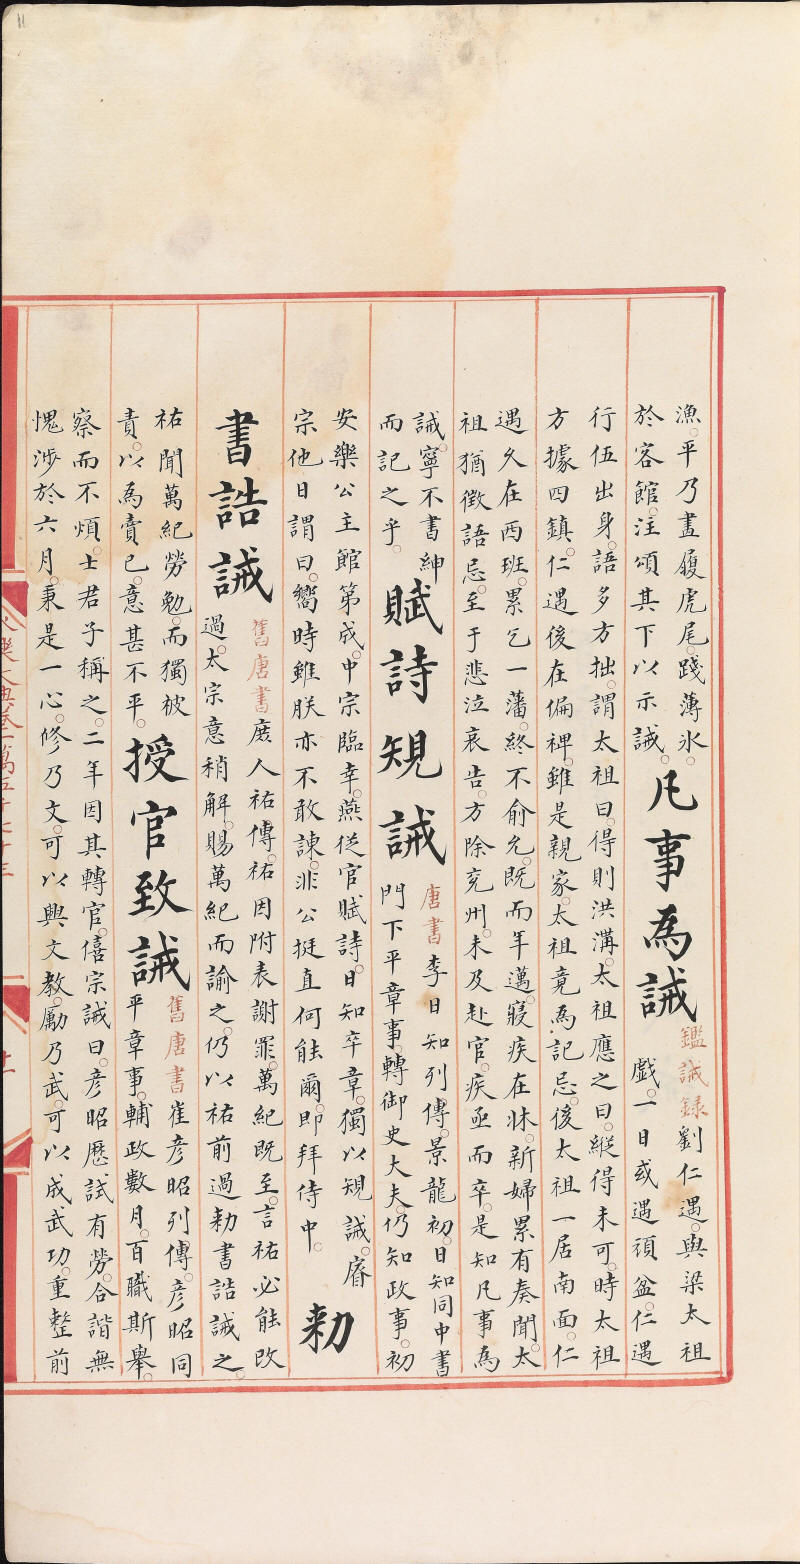 漁。平乃畫履虎尾。踐薄氷。
於客館。注頌其下以示誡。
凡事為誡
鑑誡録劉仁遇。與梁太祖
戲。一日或遇頑盆。仁遇
行伍出身。語多方拙。謂太祖曰。得則洪溝。太祖應之曰。縱得未可。時太祖
方據四鎮。仁遇後在偏裨。雖是親家。太祖竟為記忌。後太祖一居南面。仁
遇久在西班。累乞一藩。終不俞允。既而年邁。寢疾在牀。新婦累有奏聞。太
祖猶徵語忌。至于悲泣哀告。方除兖州。未及赴官。疾亟而卒。是知凡事為
誡。寧不書紳
而記之乎。
賦詩規誡
唐書李日知列傳。景龍初。日知同中書
門下平章事。轉御史大夫。仍知政事。初
安樂公主館第成。中宗臨幸。燕從官賦詩。日知卒章。獨以規誡。睿
宗他日謂曰。嚮時雖朕亦不敢諫。非公挺直何能爾。即拜侍中。
勅
書誥誡
舊唐書庶人祐傳。祐因附表謝罪。萬紀既至。言祐必能改
過。太宗意稍解。賜萬紀而諭之。仍以祐前過勅書誥誡之。
祐聞萬紀勞勉。而獨被
責。以為賣已。意甚不平。
授官致誡
舊唐書崔彦昭列傳。彦昭同
平章事。輔政數月。百職斯舉。
察而不煩。士君子稱之。二年因其轉官。僖宗誡曰。彦昭歷試有勞。合諧無
愧。涉於六月。秉是一心。修乃文。可以興文教。勵乃武。可以成武功。重整前